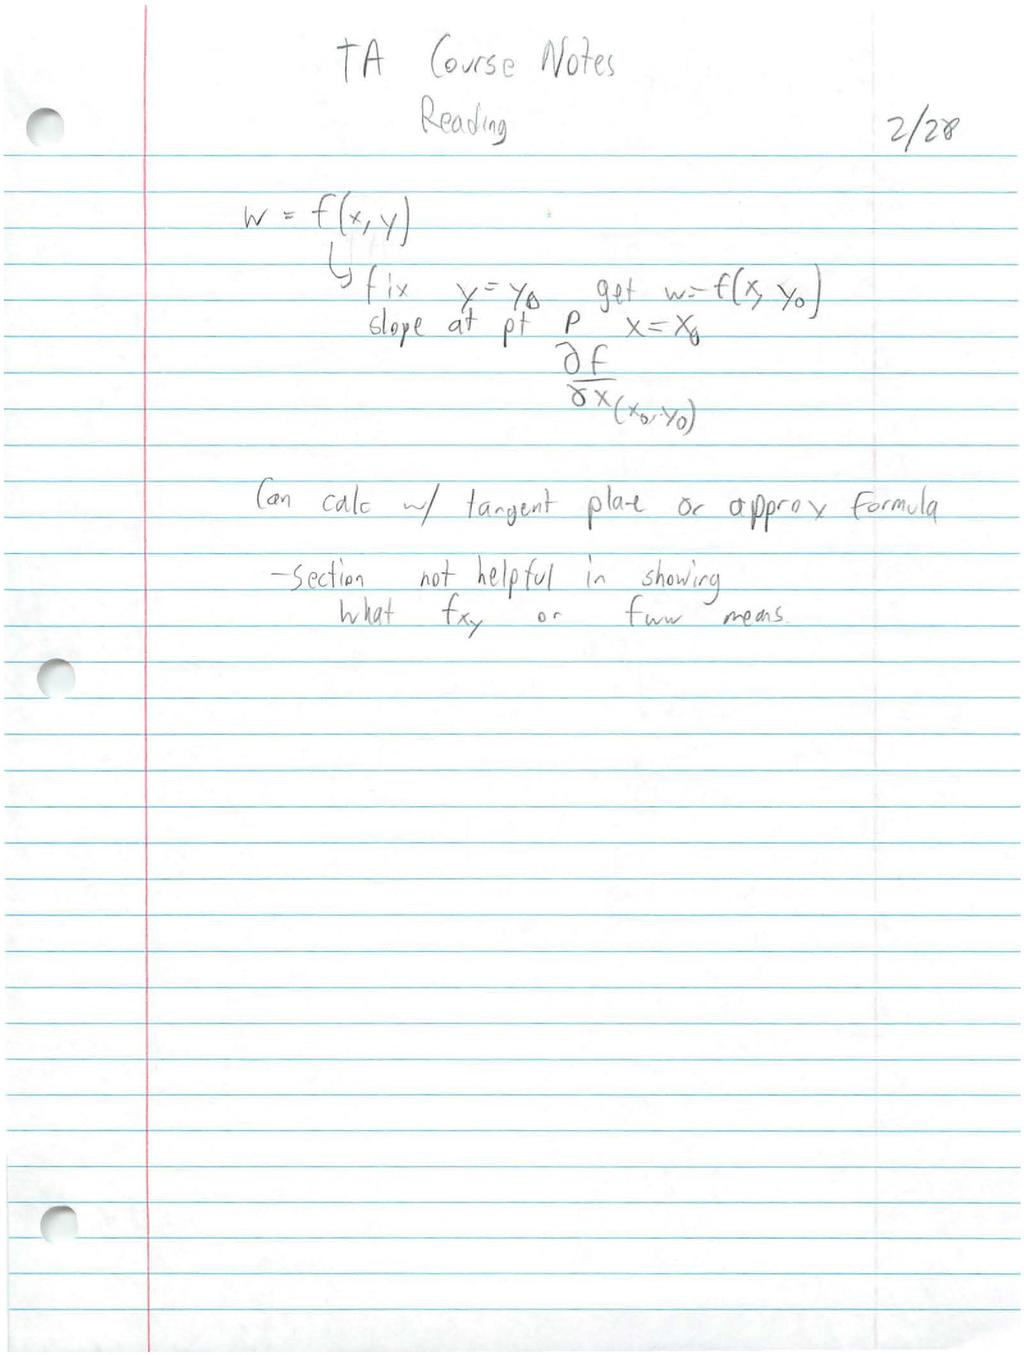 TA Course Notes
Reading
2/28
w = f(x, y)
↳ fix y = y₀ get w = f(x, y₀)
slope at pt P x = x₀
∂f
∂x (x₀, y₀)
Can calc w/ tangent plane or approx formula
- section not helpful in showing
what fxy or fww means.